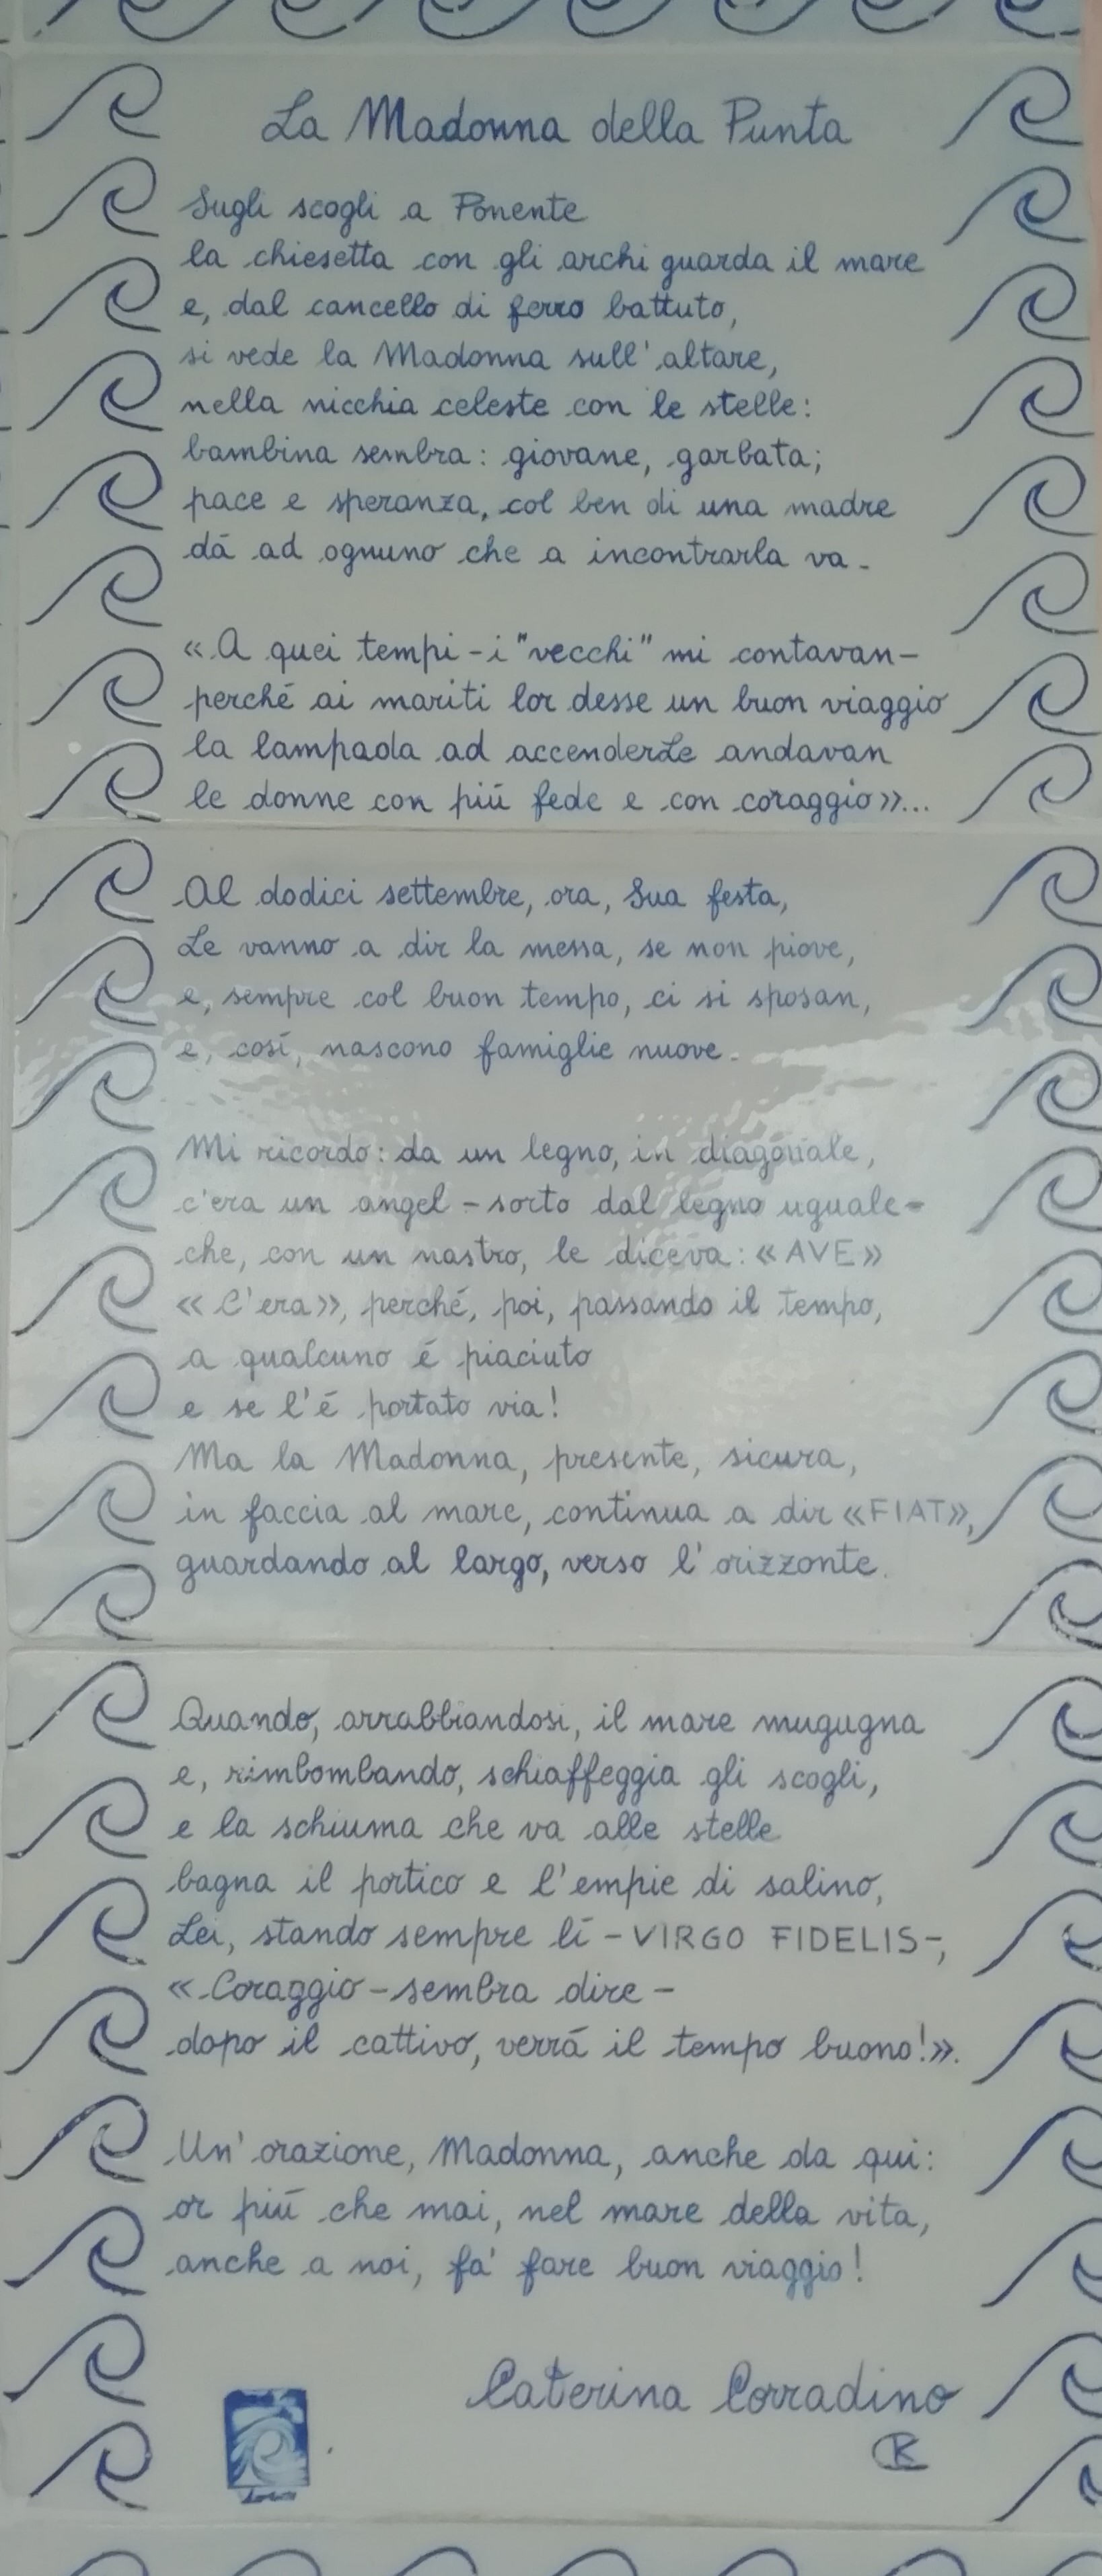 La Madonna della Punta
Sugli scogli a Ponente
la chiesetta con gli archi guarda il mare
e, dal cancello di ferro battuto,
si vede la Madonna sull'altare,
nella nicchia celeste con le stelle:
bambina sembra: giovane, garbata;
pace e speranza, col ben di una madre
dá ad ognuno che a incontrarla va.
«A quei tempi - i "vecchi" mi contavan -
perché ai mariti lor desse un buon viaggio
la lampada ad accenderLe andavan
le donne con piú fede e con coraggio»...
Al dodici settembre, ora, Sua festa,
Le vanno a dir la messa, se non piove,
e, sempre col buon tempo, ci si sposan,
e, cosí, nascono famiglie nuove.
Mi ricordo: da un legno, in diagonale,
c'era un angel - sorto dal legno uguale -
che, con un nastro, le diceva: «AVE»
«C'era», perché, poi, passando il tempo,
a qualcuno é piaciuto
e se l'é portato via!
Ma la Madonna, presente, sicura,
in faccia al mare, continua a dir «FIAT»,
guardando al largo, verso l'orizzonte.
Quando, arrabbiandosi, il mare mugugna
e, rimbombando, schiaffeggia gli scogli,
e la schiuma che va alle stelle
bagna il portico e l'empie di salino,
Lei, stando sempre lí - VIRGO FIDELIS -,
«Coraggio - sembra dire -
dopo il cattivo, verrá il tempo buono!».
Un'orazione, Madonna, anche da qui:
or piú che mai, nel mare della vita,
anche a noi, fa' fare buon viaggio!
Caterina Corradino
K